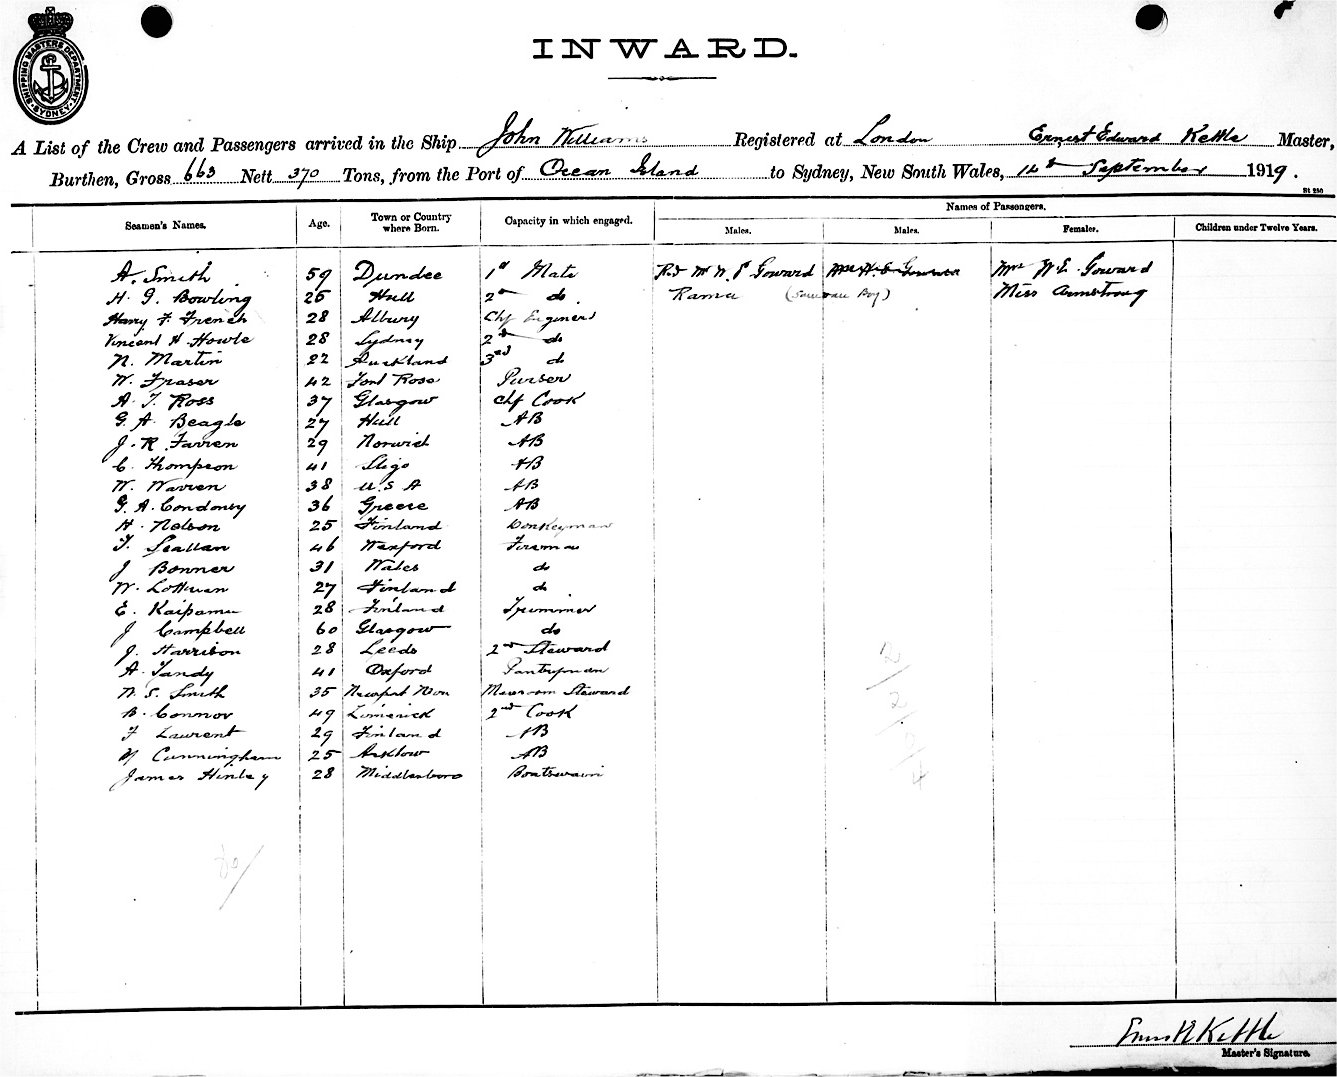 SHIPPING MASTERS DEPARTMENT SYDNEY
INWARD.
A List of the Crew and Passengers arrived in the Ship John Williams Registered at London Ernest Edward Kettle Master,
Burthen, Gross 663 Nett 370 Tons, from the Port of Ocean Island to Sydney, New South Wales, 14th September 1919.
St 250
Names of Passengers.
Seamen's Names. Age. Town or Country where Born. Capacity in which engaged. Males. Males. Females. Children under Twelve Years.
A. Smith 59 Dundee 1st Mate Rd Mr W. E Goward Mrs W. E Goward
H. J. Bowling 26 Hull 2nd do. Rama Boy) Miss Armstrong
Harry F. French 28 Albury Chf Engineer
Vincent H Howle 28 Sydney 2nd do
N. Martin 22 Auckland 3rd do
W. Fraser 42 Fort Rose Purser
A. T. Ross 37 Glasgow Chf Cook
G. A. Beagle 27 Hull AB
J. R. Farren 29 Norwich AB
C. Thompson 41 Sligo AB
W. Warren 38 U.S.A AB
G. A. Condoney 36 Greece AB
H. Nelson 25 Finland Donkeyman
T. Scallan 46 Wexford Fireman
J Bonner 31 Wales do
W. 27 Finland do
E. Kaipamu 28 Finland Trimmer
J Campbell 60 Glasgow do
J. Harrison 28 Leeds 2nd Steward
A. Tandy 41 Oxford Pantryman
W. S. Smith 35 Newport Mon Messroom Steward
B. Connor 49 Limerick 2nd Cook
F Laurent 29 Finland AB
Cunningham 25 Arklow AB
James Hinley 28 Middlesboro Boatswain
Master's Signature.